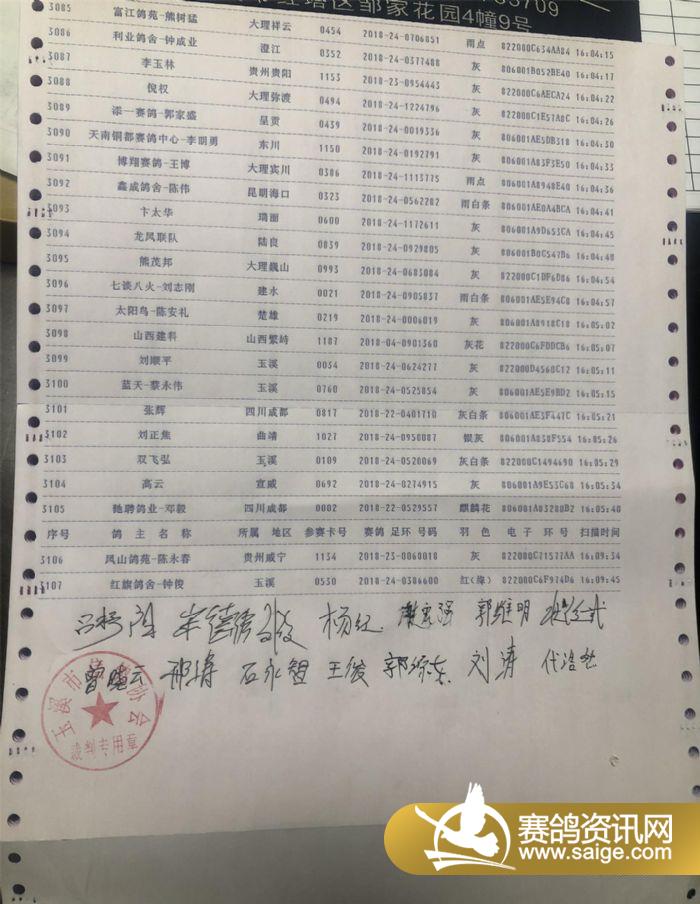 红塔区邹家花园4幢9号
3085 富江鸽苑-熊树猛 大理祥云 0454 2018-24-0706851 雨点 822000C634AA84 16:04:15
3086 利业鸽舍-钟成业 澄江 0352 2018-24-0377488 灰 806001B052BE40 16:04:17
3087 李玉林 贵州贵阳 1153 2018-23-0954443 灰 822000C6AECA24 16:04:22
3088 倪权 大理弥渡 0494 2018-24-1224796 灰 822000C1E57A8C 16:04:26
3089 添一赛鸽-郭家盛 呈贡 0439 2018-24-0019336 灰 806001AE5DB318 16:04:30
3090 天南铜都赛鸽中心-李明勇 东川 1150 2018-24-0192791 灰 806001A83F3E50 16:04:33
3091 博翔赛鸽-王博 大理宾川 0386 2018-24-1113775 雨点 806001A8948E40 16:04:36
3092 鑫成鸽舍-陈伟 昆明海口 0323 2018-24-0562282 雨白条 806001AE0A4BCA 16:04:41
3093 卞太华 瑞丽 0600 2018-24-1172611 灰 806001A9D653CA 16:04:45
3094 龙凤联队 陆良 0839 2018-24-0929805 灰 806001B0C547B6 16:04:48
3095 熊茂邦 大理巍山 0993 2018-24-0683084 灰 822000C1DF6D86 16:04:54
3096 七谈八火-刘志刚 建水 0021 2018-24-0905837 雨白条 806001AE5E94C8 16:04:57
3097 太阳鸟-陈安礼 楚雄 0219 2018-24-0006019 灰 806001A8918C18 16:05:02
3098 山西建科 山西繁峙 1187 2018-04-0901360 灰花 822000C6FDDCB6 16:05:07
3099 刘顺平 玉溪 0034 2018-24-0624277 灰 822000D4560C12 16:05:11
3100 蓝天-蔡永伟 玉溪 0760 2018-24-0525854 灰 806001AE5E9BD2 16:05:15
3101 张辉 四川成都 0817 2018-22-0401710 灰白条 806001AE3F447C 16:05:21
3102 刘正焦 曲靖 1027 2018-24-0950087 银灰 806001A838F554 16:05:26
3103 双飞弘 玉溪 0109 2018-24-0520069 灰白条 822000C1494690 16:05:29
3104 高云 宣威 0692 2018-24-0274915 灰 806001A9E53C68 16:05:34
3105 驰骋鸽业-邓毅 四川成都 0002 2018-22-0529557 麒麟花 806001A83280D2 16:05:40
序号 鸽 主 名 称 所属 地区 参赛卡号 赛鸽 足环 号码 羽 色 电 子 环 号 扫描时间
3106 凤山鸽苑-陈永春 贵州威宁 1134 2018-23-0060018 灰 822000C71577AA 16:09:34
3107 红旗鸽舍-钟俊 玉溪 0530 2018-24-0386600 红(绛) 822000C6F974D6 16:09:45
杨红 郭维明
曾晓云 邢涛 石永智 王俊 郭综东 刘涛
玉溪市信鸽协会
裁判专用章
赛鸽资讯网
www.saige.com